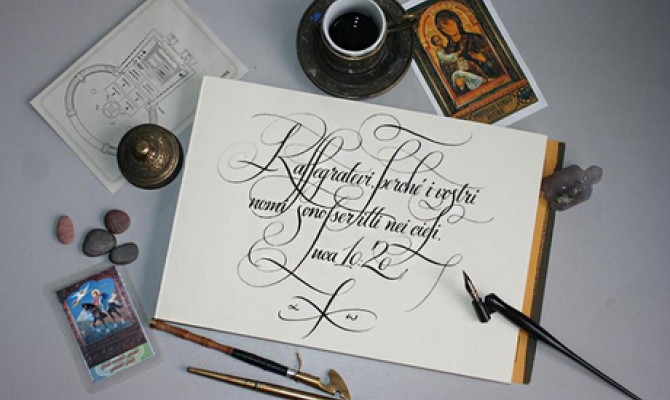 Rallegratevi, perché i vostri
nomi sono scritti nei cieli.
Luca 10:20
α ω